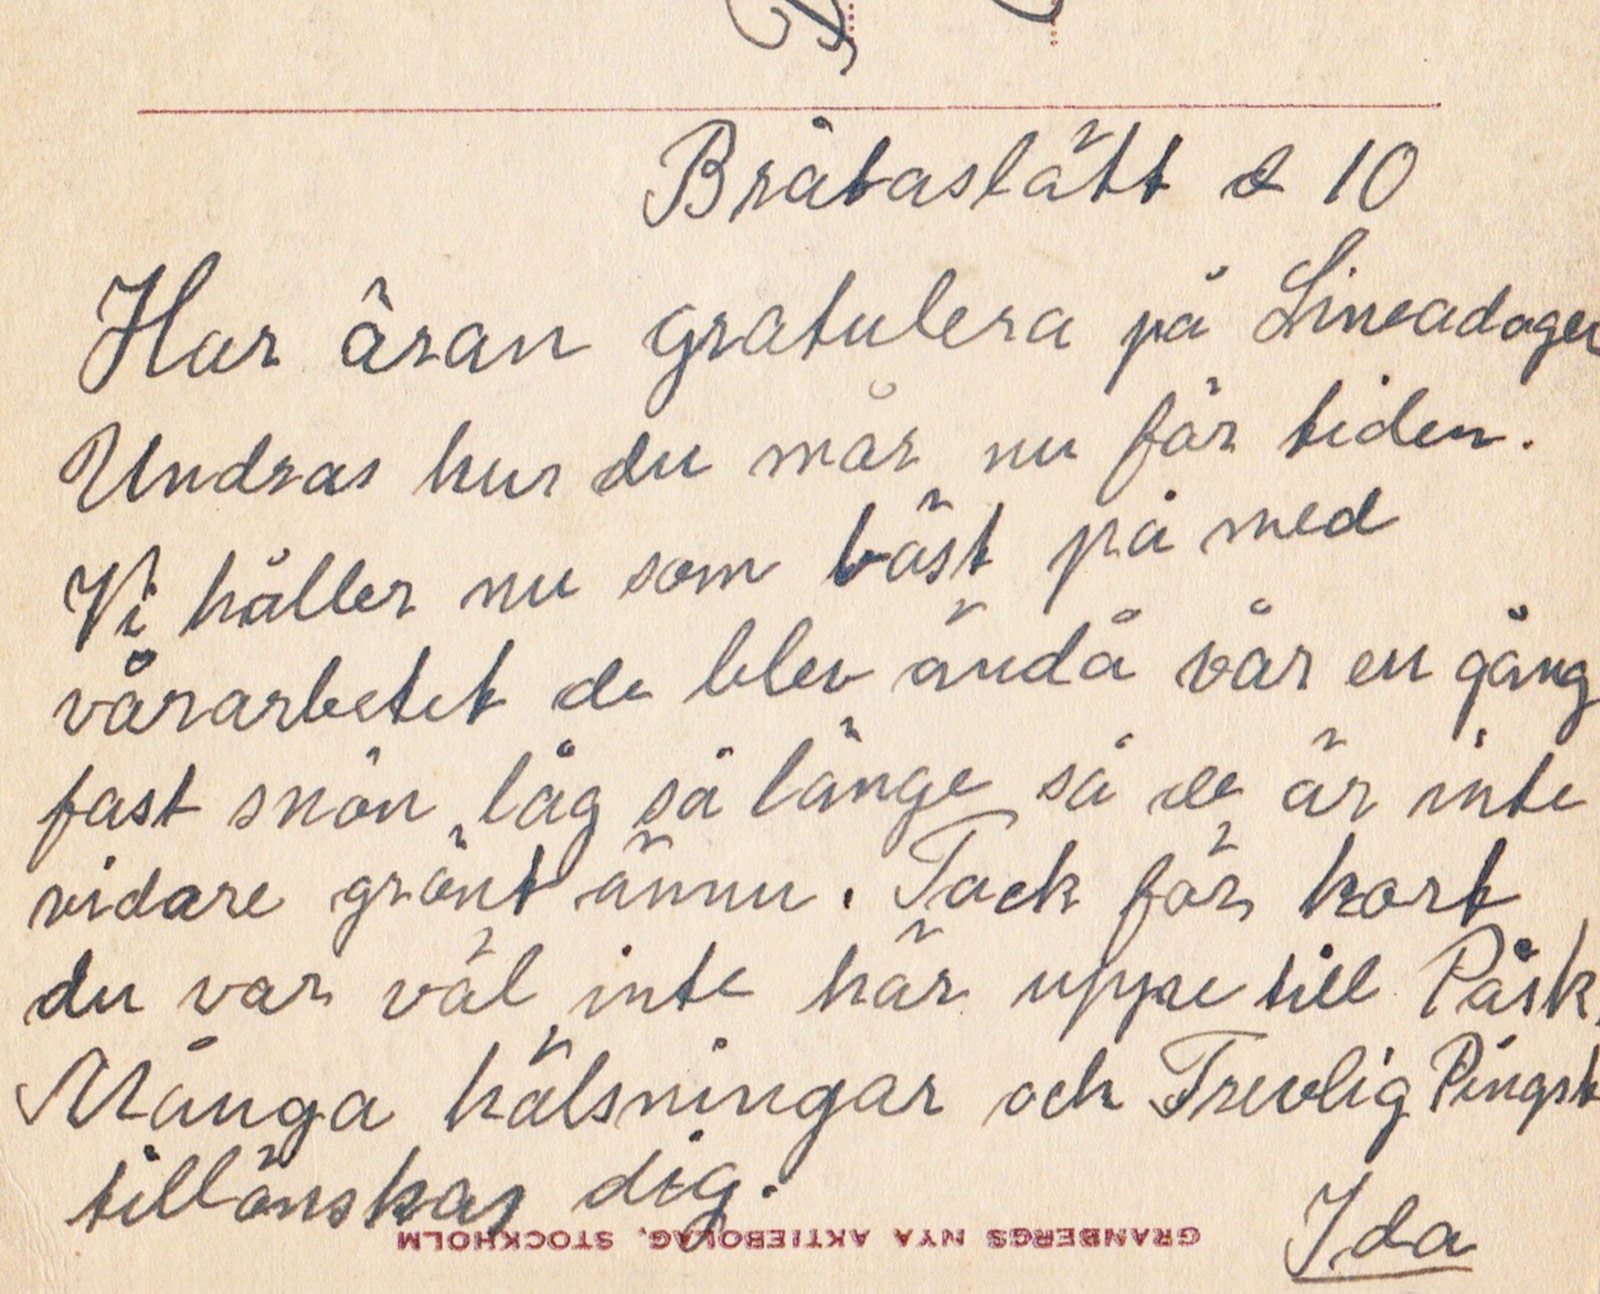 Bråtaslätt d 10
Har äran gratulera på Lineadagen
Undras hur du mår nu för tiden.
Vi håller nu som bäst på med
vårarbetet de blev ändå vår en gång
fast snön låg så länge så de är inte
vidare grönt ännu. Tack för kort
du var väl inte här uppe till Påsk,
Många hälsningar och Trevlig Pingst
tillönskas dig.
Ida
GRANBERGS NYA AKTIEBOLAG, STOCKHOLM